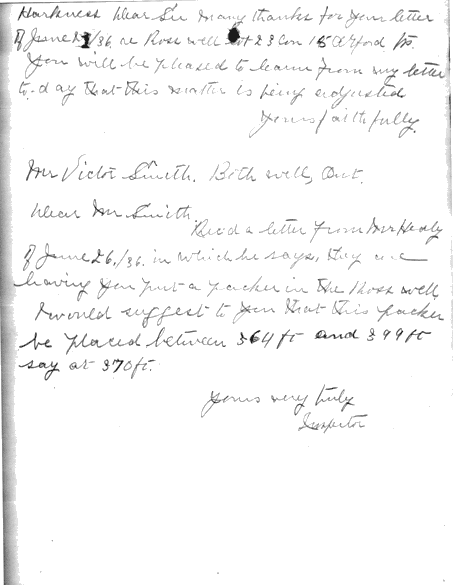 Harkness Dear Sir Many thanks for your letter
of June 23/36 re Ross well Lot 23 Con 15 Orford tp.
You will be pleased to learn from my letter
to-day that this matter is being adjusted
Yours faithfully.
Mr Victor Smith. Bothwell, Ont.
Dear Mr Smith.
Recd a letter from Mr Healy
of June 26/36. in which he says, they are
having you put a packer in the Ross well
I would suggest to you that this packer
be placed between 364 ft and 399 ft
say at 370 ft.
yours very truly
Inspector